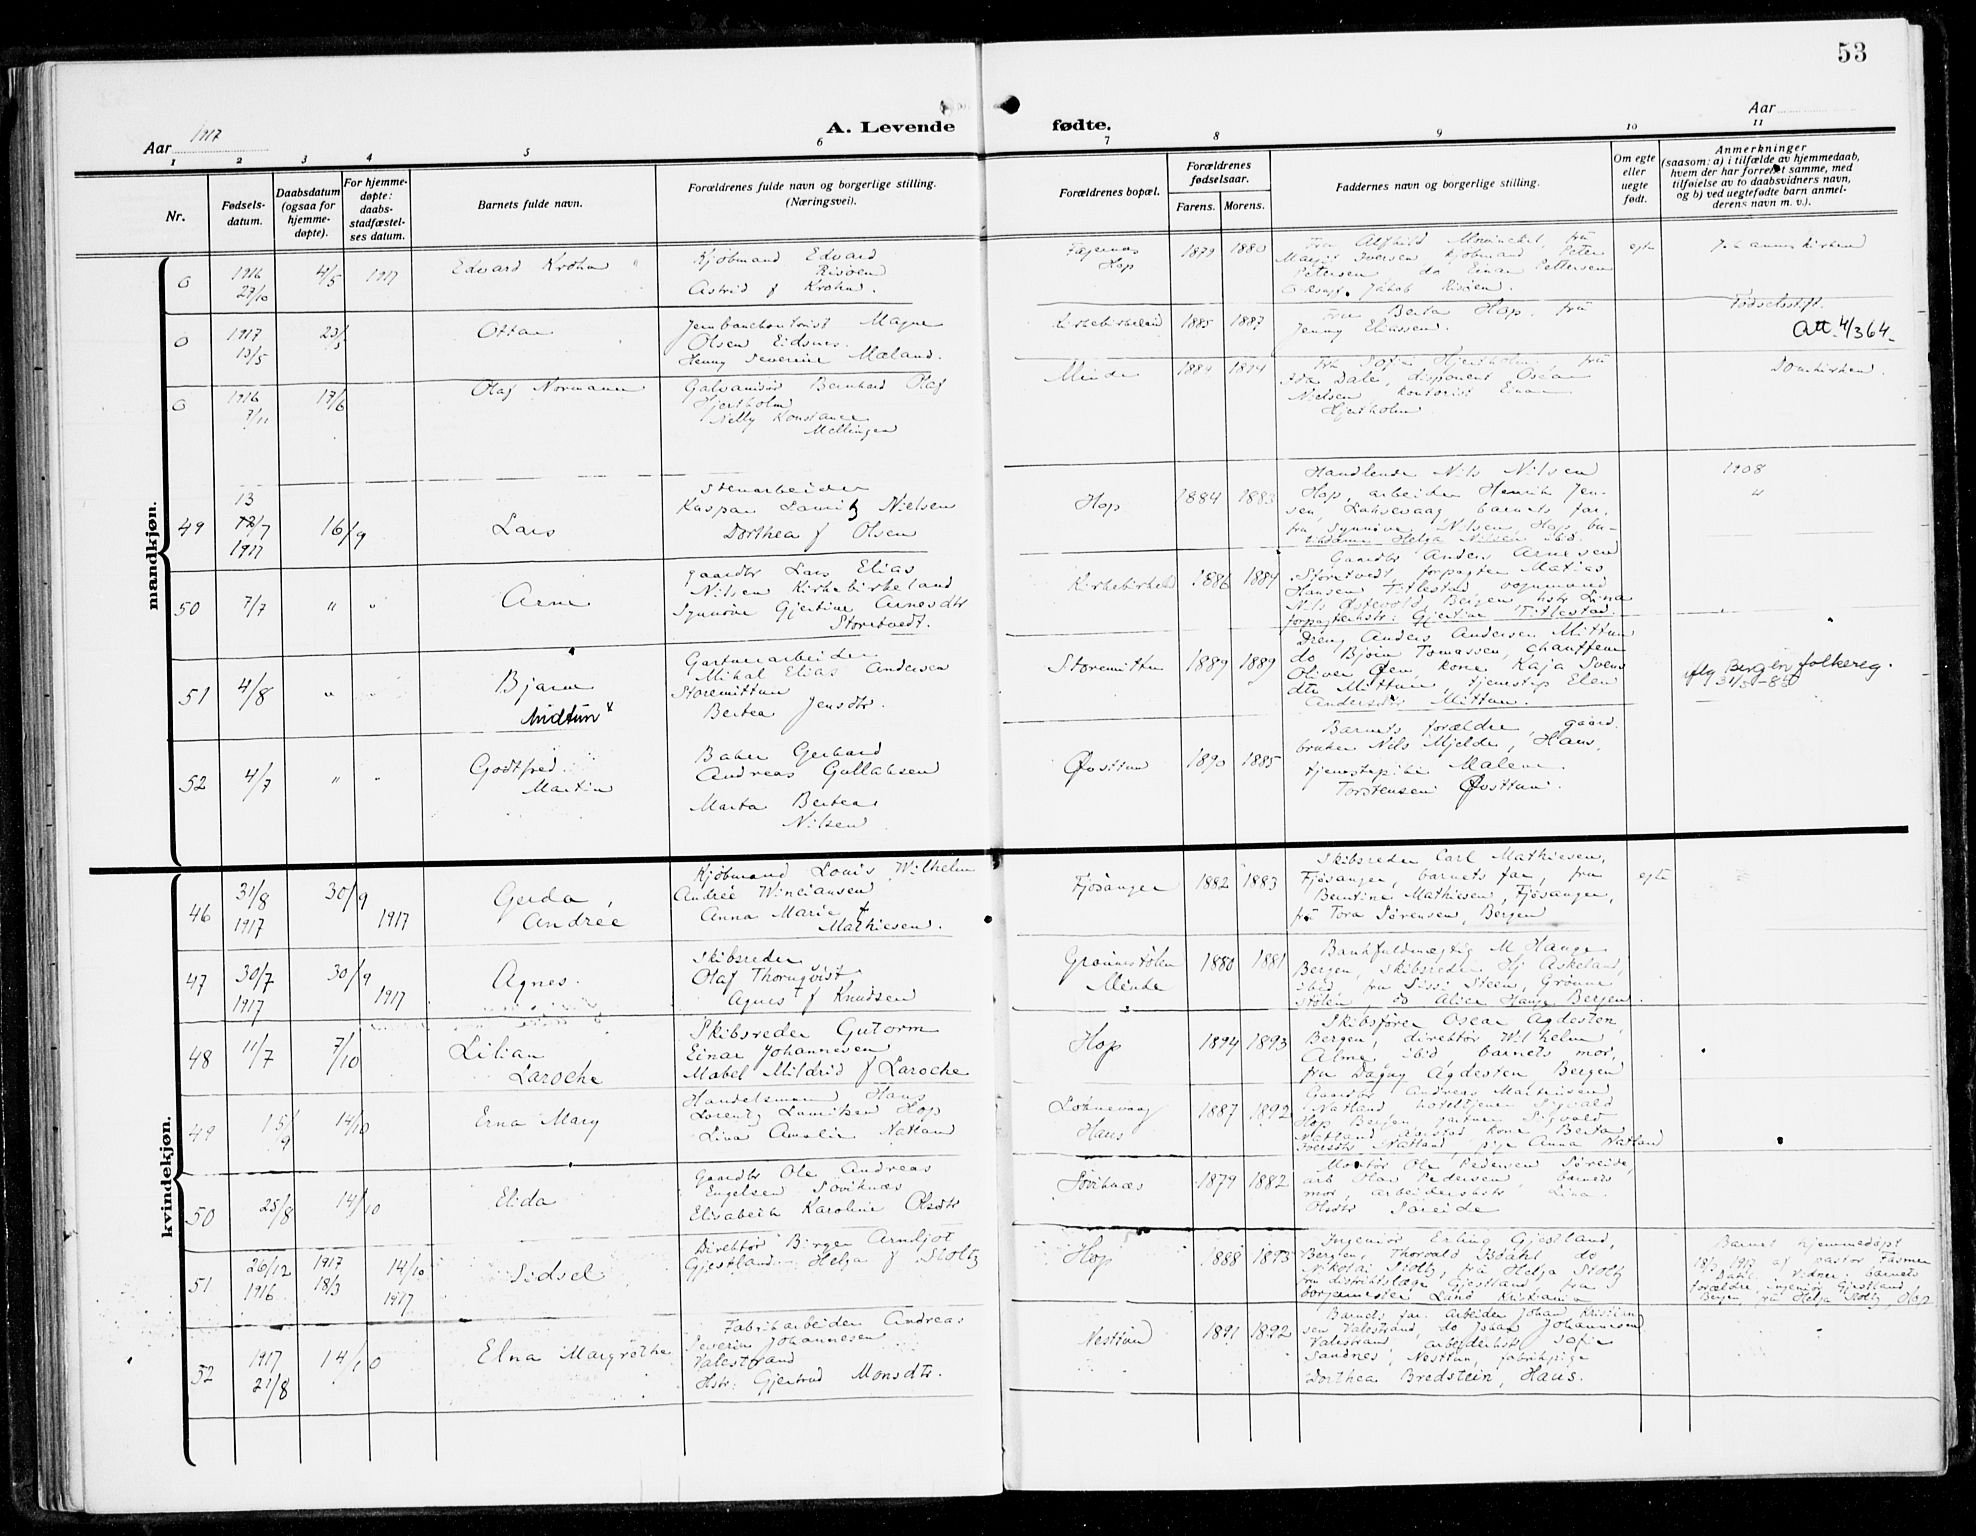 53
Aar 1917
A. Levende
fødte.
Aar
1 2 3 4 5 6 7 8 9 10 11
Nr.
Fødsels-
datum.
Daabsdatum
(ogsaa for
hjemme-
døpte).
For hjemme-
døpte:
daabs-
stadfæstel-
ses datum.
Barnets fulde navn.
Forældrenes fulde navn og borgerlige stilling.
(Næringsvei).
Forældrenes bopæl.
Forældrenes
fødselsaar.
Farens. Morens.
Faddernes navn og borgerlige stilling.
Om egte
eller
uegte
født.
Anmerkninger
(saasom: a) i tilfælde av hjemmedaab,
hvem der har forrettet samme, med
tilføielse av to daabsvidners navn,
og b) ved uegtefødte barn anmel-
derens navn m. v.).
mandkjøn.
0
1916
27/10
4/5
1917
Edvard Krohn
Kjøbmand Edvard
Risøen
Astrid f Krohn.
Hop
1879 1880
Fru Alfhild Mowinckel, fru
Margit Iversen, kjøbmand Peter
Petersen, do Einar Pettersen
Jakob Risøen.
egte
Johanneskirken
0
1917
13/5
23/5
Ottar
Jernbanekontorist Magne
Olsen Eidsnes.
Henny Severine Mæland.
Kirkebirkeland
1885 1887
Fru Berta Hop, fru
Jenny Eliassen.
Fødselsstift.
Att. 4/3 64.
0
1916
7/11
17/6
Olaf Normann
Galvanisør Bernhard Olaf
Hjertholm
Nelly Konstance
Mellingen
Minde
1884 1894
Fru Sofie Hjertholm, fru
Ida Dale, disponent Oscar
Nielsen, kontorist Einar
Hjertholm
Domkirken.
49
13
12/7
1917
16/9
Lars
Stenarbeider
Kaspar Lauritz Nielsen
Dorthea f Olsen
Hop
1884 1883
Handlende Nils Nilsen
Hop, arbeider Henrik Jen-
sen, Laksevaag, barnets far,
fru Synnøve Nilsen, Hop, bu-
tikdame Helga Nilsen ibid.
1908
"
50
7/7
" "
Arne
Gaardbr Lars Elias
Nilsen Kirkebirkeland
Synnøve Gjertine Arnesdtr
Storetvedt.
Kirkebirkeld
1886 1884
Gaardbr Anders Arnesen
Storetvedt, forpagter Matias
Hansen Titlestad, vognmand
Nils Østevold, Bergen, hstr Lina
forpagterhstr: Gjertine Titlestad.
51
4/8
" "
Bjarne
Midtun x
Gartnerarbeider
Mikal Elias Andersen
Storemittun
Bertea Jensdtr.
Storemittun
1889 1889
Dreng Anders Andersen Mittun
do Bjørn Tomassen, chauffeur
Oliver Øen, kone Kaja Svens
dtr Mittun, tjenestep Elen
Andersdtr Mittun.
iflg Bergen folkereg.
31/5-83
52
4/7
" "
Godtfred
Martin
Baker Gerhard
Andreas Gullaksen
Marta Bertea
Nilsen
Øvsttun
1890 1885
Barnets forældre, gaard
bruker Nils Mjelde, Haus,
tjenestepike Malene
Torstensen Øvsttun.
kvindekjøn.
46
31/8
1917
30/9
1917
Gerda
Andrée
Kjøbmand Louis Wilhelm
Andrée Winciansen
Anna Marie f
Mathiesen.
Fjøsanger
1882 1883
Skibsreder Carl Mathiesen,
Fjøsanger, barnets far, fru
Berntine Mathiesen, Fjøsanger,
fru Tora Sørensen, Bergen
egte
47
30/7
1917
30/9
1917
Agnes.
Skibsreder
Olaf Thornqvist
Agnes f Knudsen
Grønnestølen
Minde
1880 1881
Bankfuldmægtig M Hauge
Bergen, skibsreder Hj Askeland,
ibid, fru Sissi Steen, Grønne
stølen, do Alice Hauge, Bergen.
48
11/7
7/10
Lilian
Laroche
Skibsreder Gutorm
Einar Johannesen
Mabel Mildrid f Laroche
Hop
1894 1893
Skibsfører Oscar Agdesten,
Bergen, direktør Wilhelm
Alme ibid, barnets mor,
fru Dagny Agdesten Bergen
49
15/9
14/10
Erna Mary
Handelsmand Hans
Lorentz Lauritsen Hop
Lina Amalie Natland
Loknevaag
Haus
1887 1892
Gaardbr Andreas Mathiassen
Natland, hoteltjener Sigvald
Hop Bergen, gartner Sigvald
Natland, Aarstad, kone Berta
Iversdtr Natland, pige Anna Natland
50
25/8
14/10
Elida
Gaardbr Ole Andreas
Engelsen Søviknæs
Elisabeth Karoline Olsdtr
Søviknæs
1879 1882
Montør Ole Pedersen Søreide,
arb Hans Pedersen, barnets
mor, arbeiderhstr Lina
Olsdtr Søreide
51
26/12
1916
1917
18/3
14/10
1917
Sidsel
Direktør Birger Arnljot
Gjestland - Helga f Stoltz
Hop
1888 1893
Ingeniør Erling Gjestland,
Bergen, Thorvald Isdahl, do
Nikolai Stoltz, fru Helga Stoltz
fru distriktslæge Gjestland, fru
borgemester Lund Kristiania
Barnet hjemmedøpt
18/3 1917 af pastor Fasmer
Dahl. Vidner: barnets
forældre, ingeniør Gjestland,
Bergen, fru Helga Stoltz, Hop
52
1917
21/8
14/10
Elna Margrethe
Fabrikarbeider Andreas
Severin Johannesen
Valestrand
Hstr: Gjertrud Monsdtr.
Nesttun
1891 1892
Barnets far, arbeider Johan Kristian
sen Valestrand, do Johan Johannesen
Valestrand, arbeiderhstr Sofie
Sandnes, Nesttun, fabrikpige
Dorthea Bredstein, Haus.